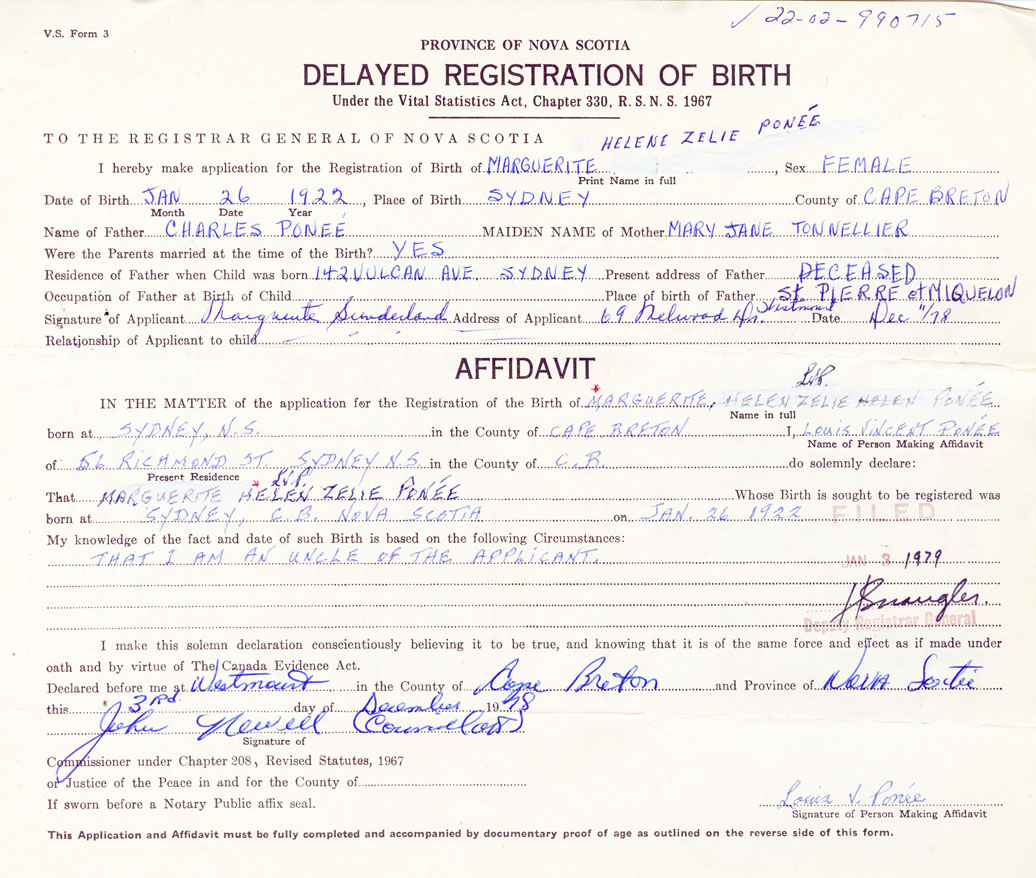 V.S. Form 3
✓ 22-02-990715
PROVINCE OF NOVA SCOTIA
DELAYED REGISTRATION OF BIRTH
Under the Vital Statistics Act, Chapter 330, R.S.N.S. 1967
TO THE REGISTRAR GENERAL OF NOVA SCOTIA
HELENE ZELIE PONÉE
I hereby make application for the Registration of Birth of MARGUERITE, Sex FEMALE
Print Name in full
Date of Birth JAN 26 1922, Place of Birth SYDNEY County of CAPE BRETON
Month Date Year
Name of Father CHARLES PONEÉ MAIDEN NAME of Mother MARY JANE TONNELLIER
Were the Parents married at the time of the Birth? YES
Residence of Father when Child was born 142 VULCAN AVE. SYDNEY Present address of Father DECEASED
Occupation of Father at Birth of Child Place of birth of Father St. PIERRE et MIQUELON
Signature of Applicant Marguerite Sunderland Address of Applicant 69 Dr. Westmount Date Dec 11/78
Relationship of Applicant to child
AFFIDAVIT
L.V.P.
IN THE MATTER of the application for the Registration of the Birth of MARGUERITE, HELEN ZELIE HELEN PONÉE
Name in full
born at SYDNEY, N.S. in the County of CAPE BRETON I, LOUIS VINCENT PONÉE
Name of Person Making Affidavit
of 56 RICHMOND ST. SYDNEY N.S. in the County of C.B. do solemnly declare:
Present Residence L.V.P.
That MARGUERITE HELEN ZELIE PONÉE Whose Birth is sought to be registered was
born at SYDNEY, C.B. NOVA SCOTIA on JAN. 26 1922
FILED
My knowledge of the fact and date of such Birth is based on the following Circumstances:
THAT I AM AN UNCLE OF THE APPLICANT.
JAN 3 1979
Deputy Registrar General
I make this solemn declaration conscientiously believing it to be true, and knowing that it is of the same force and effect as if made under
oath and by virtue of The Canada Evidence Act.
Declared before me at Westmount in the County of Cape Breton and Province of Nova Scotia
this 3rd day of December 1978
John Newell (Councillor)
Signature of
Commissioner under Chapter 208, Revised Statutes, 1967
or Justice of the Peace in and for the County of
If sworn before a Notary Public affix seal.
Louis V. Ponée
Signature of Person Making Affidavit
This Application and Affidavit must be fully completed and accompanied by documentary proof of age as outlined on the reverse side of this form.